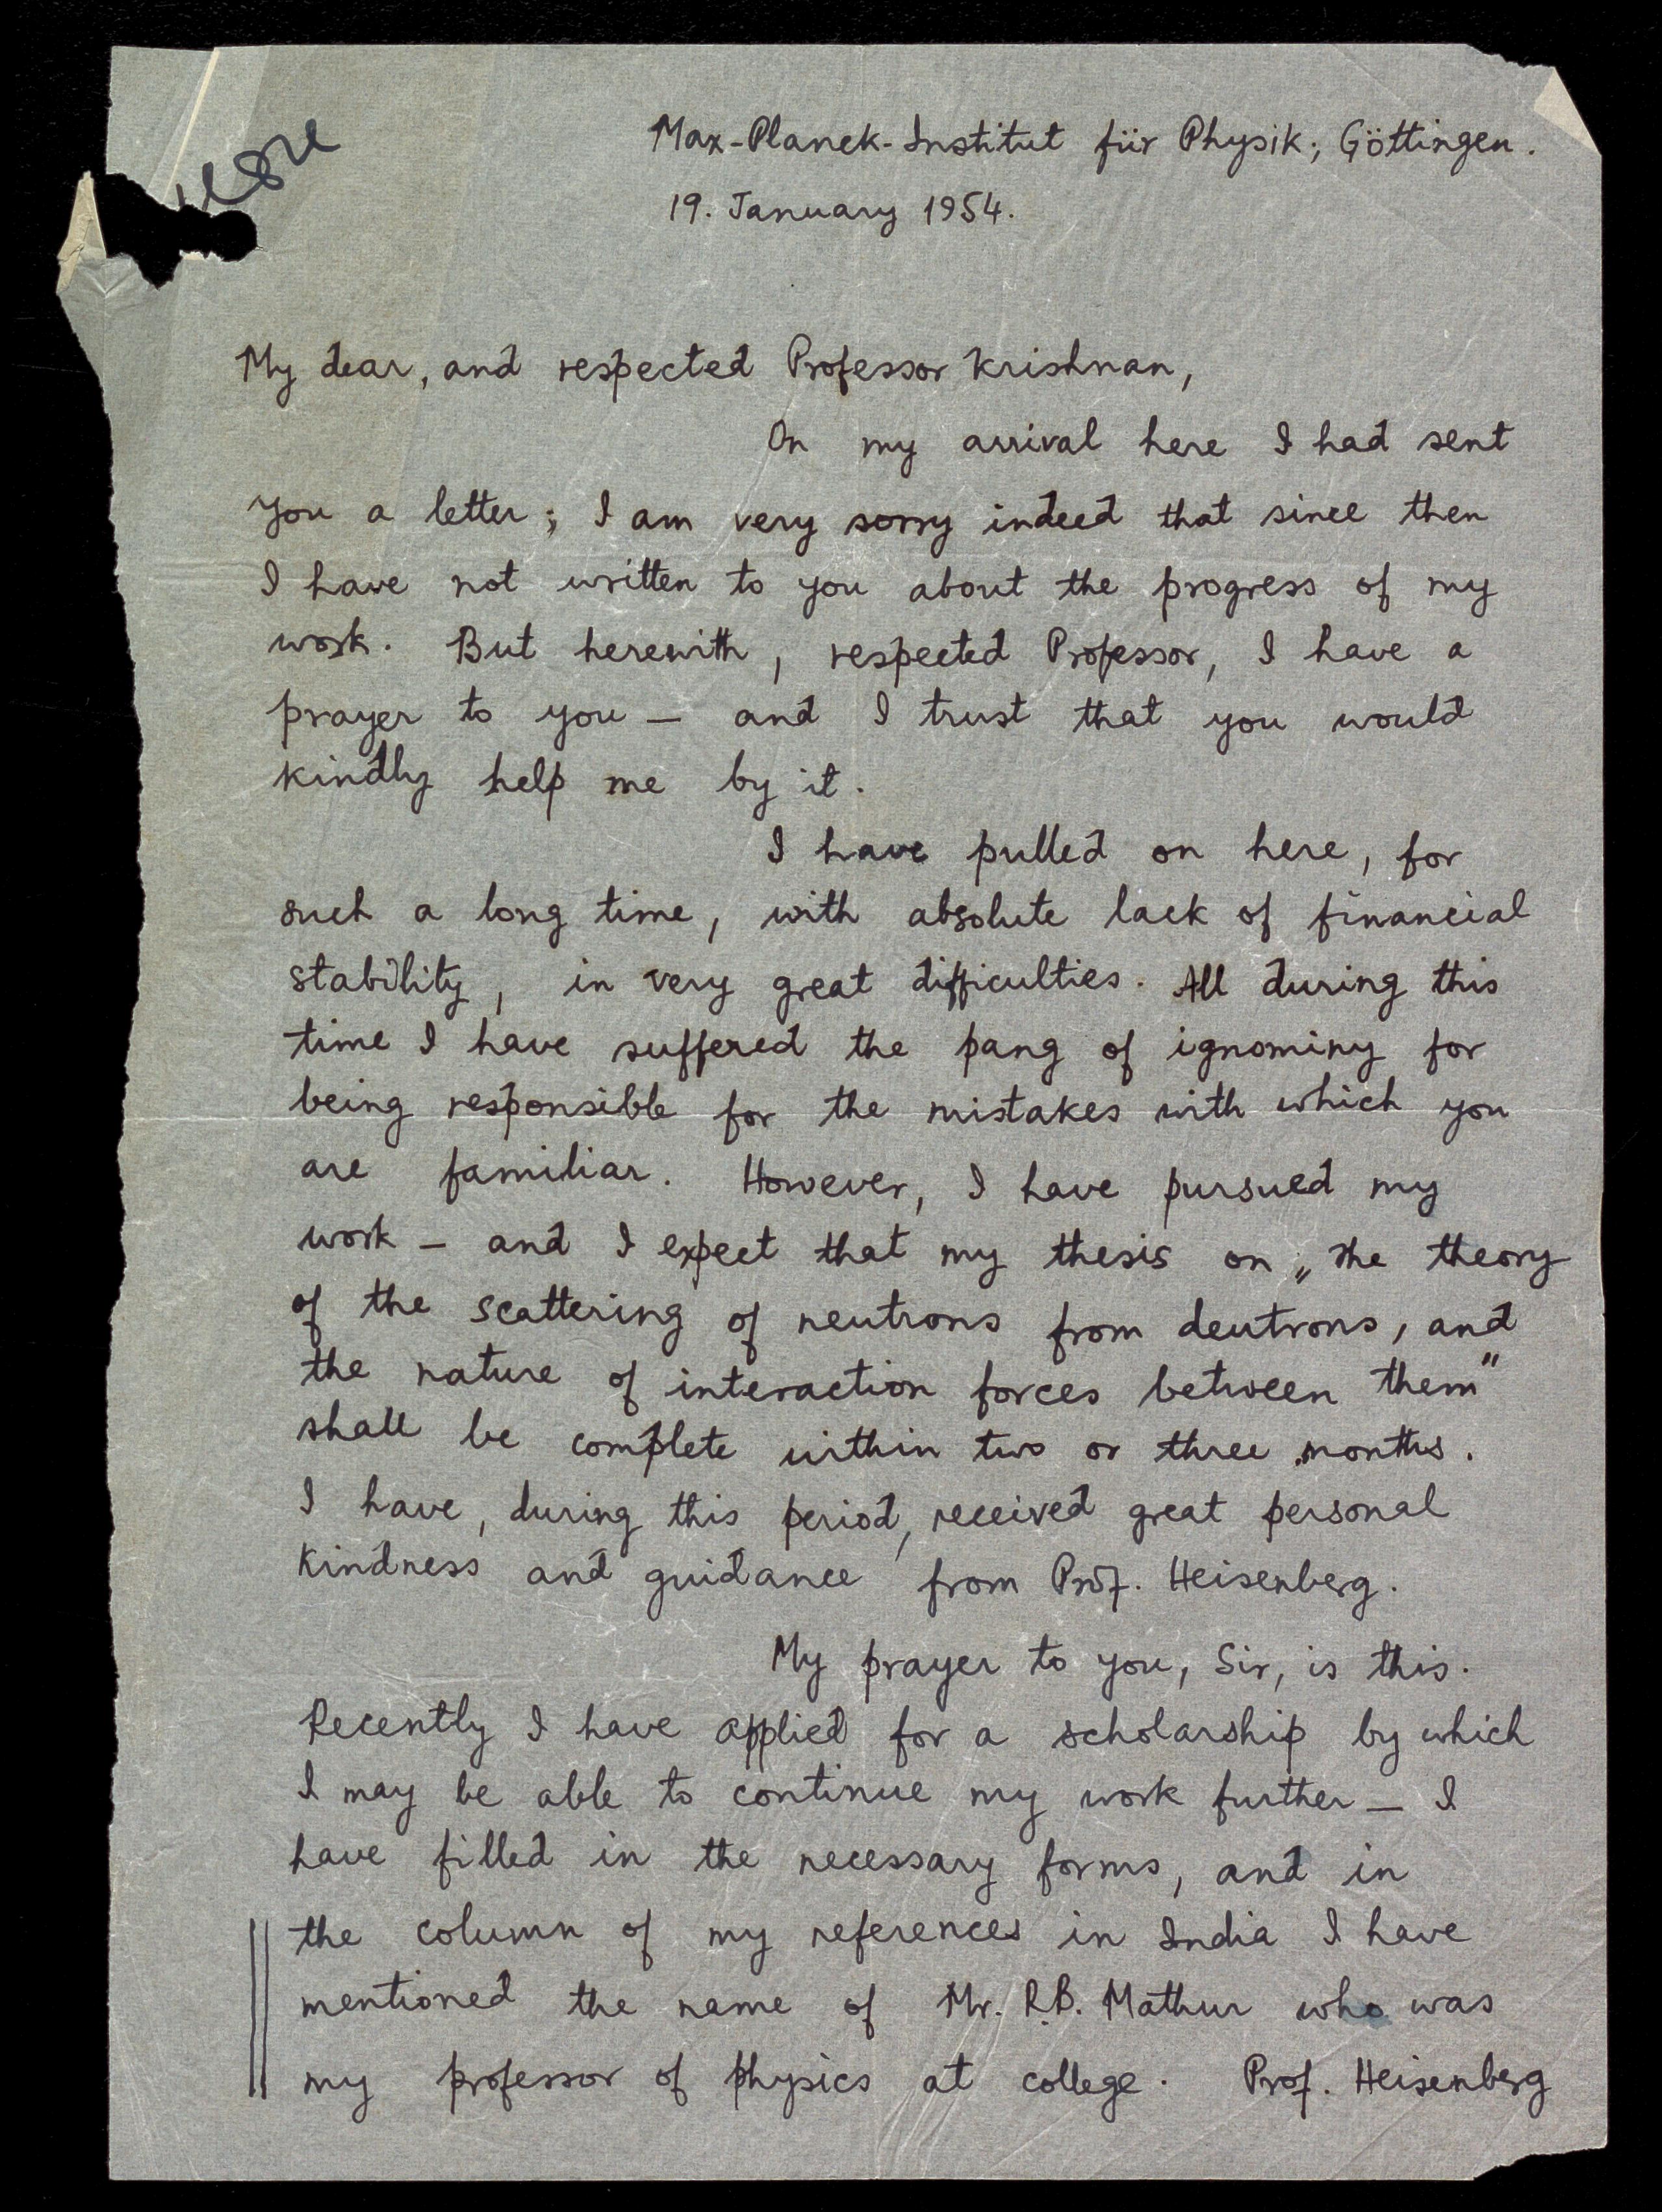 Max-Planck-Institut für Physik; Göttingen.
19. January 1954.
My dear, and respected Professor Krishnan,
On my arrival here I had sent
you a letter; I am very sorry indeed that since then
I have not written to you about the progress of my
work. But herewith, respected Professor, I have a
prayer to you — and I trust that you would
kindly help me by it.
I have pulled on here, for
such a long time, with absolute lack of financial
stability, in very great difficulties. All during this
time I have suffered the pang of ignominy for
being responsible for the mistakes with which you
are familiar. However, I have pursued my
work — and I expect that my thesis on „The theory
of the scattering of neutrons from deutrons, and
the nature of interaction forces between them"
shall be complete within two or three months.
I have, during this period, received great personal
kindness and guidance from Prof. Heisenberg.
My prayer to you, Sir, is this.
Recently I have applied for a scholarship by which
I may be able to continue my work further — I
have filled in the necessary forms, and in
the column of my references in India I have
mentioned the name of Mr. R.B. Mathur who was
my professor of physics at college. Prof. Heisenberg